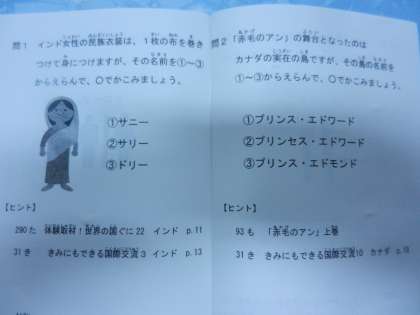 問1 インド女性の民族衣装は、1枚の布を巻き
つけて身につけますが、その名前を①~③
からえらんで、○でかこみましょう。
①サニー
②サリー
③ドリー
【ヒント】
290た 体験取材!世界の国ぐに22 インド p.11
31き きみにもできる国際交流3 インド p.13
問2 「赤毛のアン」の舞台となったのは
カナダの実在の島ですが、その島の名前を
①~③からえらんで、○でかこみましょう。
①プリンス・エドワード
②プリンセス・エドワード
③プリンス・エドモンド
【ヒント】
93も 「赤毛のアン」上巻
31き きみにもできる国際交流10 カナダ